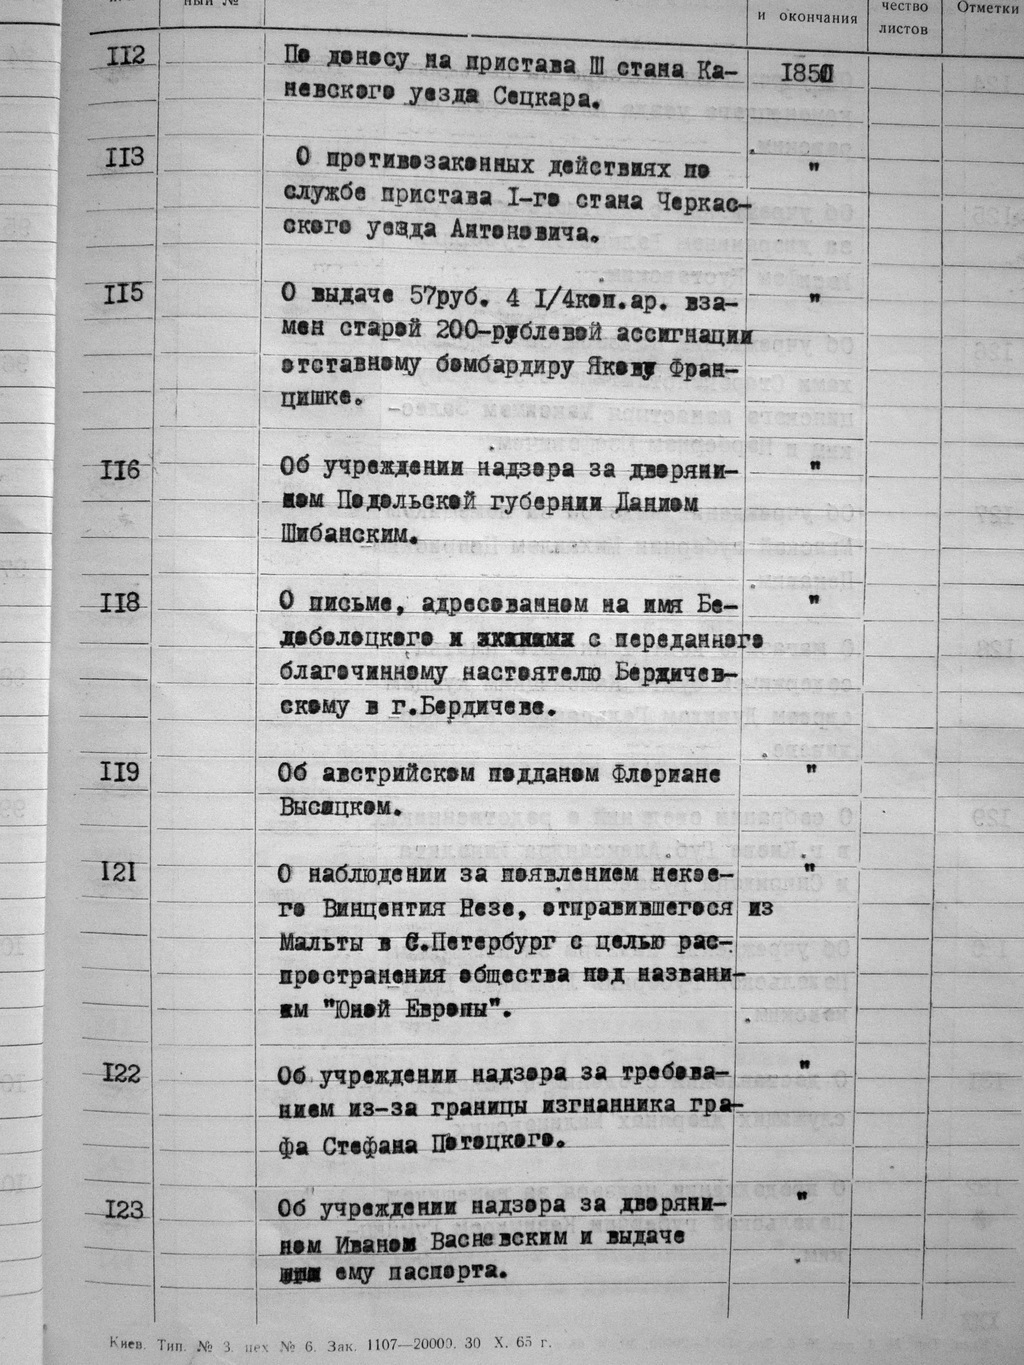 ный №
и окончания
чество
листов
Отметки
II2
По доносу на пристава Ш стана Ка-
1850
невского уезда Сецкара.
II3
О противозаконных действиях по
"
службе пристава I-го стана Черкас-
ского уезда Антоновича.
II5
О выдаче 57руб. 4 I/4коп.ар. вза-
"
мен старой 200-рублевой ассигнации
отставному бомбардиру Якову Фран-
цишке.
II6
Об учреждении надзора за дворяни-
"
ном Подольской губернии Данием
Шибанским.
II8
О письме, адресованном на имя Бе-
"
доболоцкого и с переданного
благочинному настоятелю Бердичев-
скому в г.Бердичеве.
II9
Об австрийском подданом Флориане
"
Высоцком.
I2I
О наблюдении за появлением некое-
"
го Винцентия Везе, отправившегося из
Мальты в С.Петербург с целью рас-
пространения общества под названи-
ем "Юной Европы".
I22
Об учреждении надзора за требова-
"
нием из-за границы изгнанника гра-
фа Стефана Потоцкого.
I23
Об учреждении надзора за дворяни-
"
ном Иваном Васневским и выдаче
ему паспорта.
Киев. Тип. № 3. цех № 6. Зак. 1107—20000. 30 X. 65 г.